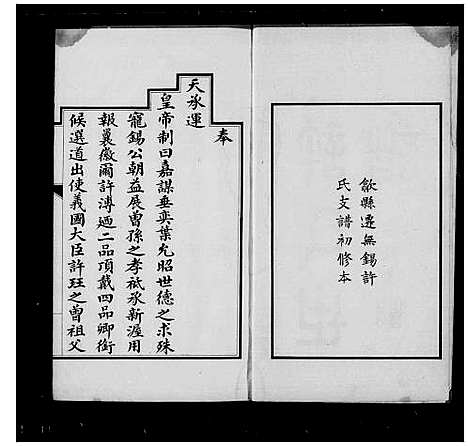 歙縣遷無錫許
氏支譜初修本
奉
天承運
皇帝制曰嘉謀垂奕葉允昭世德之求殊
寵錫公朝益展曾孫之孝祗承新渥用
報襄徽爾許溥廼二品頂戴四品卿銜
候選道出使義國大臣許珏之曾祖父